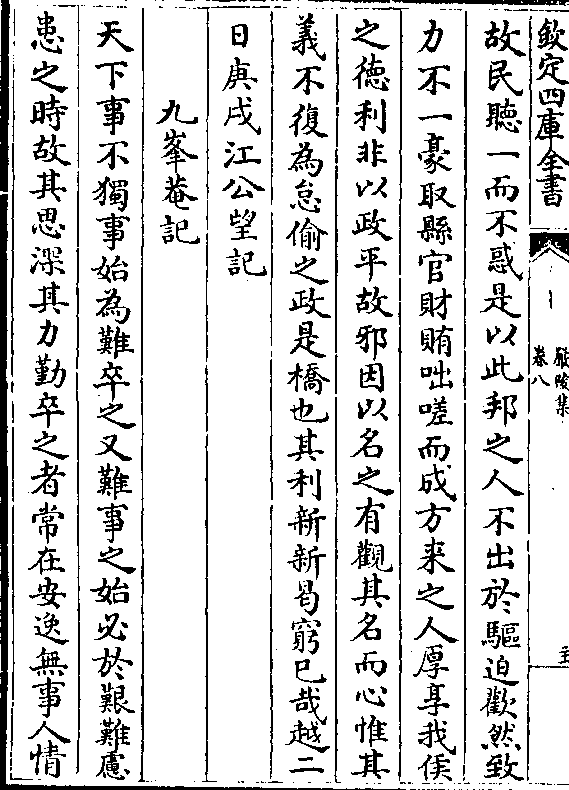 欽定四庫全書
嚴陵集
卷八
故民聽一而不惑是以此邦之人不出於驅迫歡然致
力不一豪取縣官財賄咄嗟而成方来之人厚享我侯
之德利非以政平故邪因以名之有觀其名而心惟其
義不復為怠偷之政是橋也其利新新曷窮已哉越二
日庚戌江公望記
九峯菴記
天下事不獨事始為難卒之又難事之始必於艱難慮
患之時故其思深其力勤卒之者常在安逸無事人情